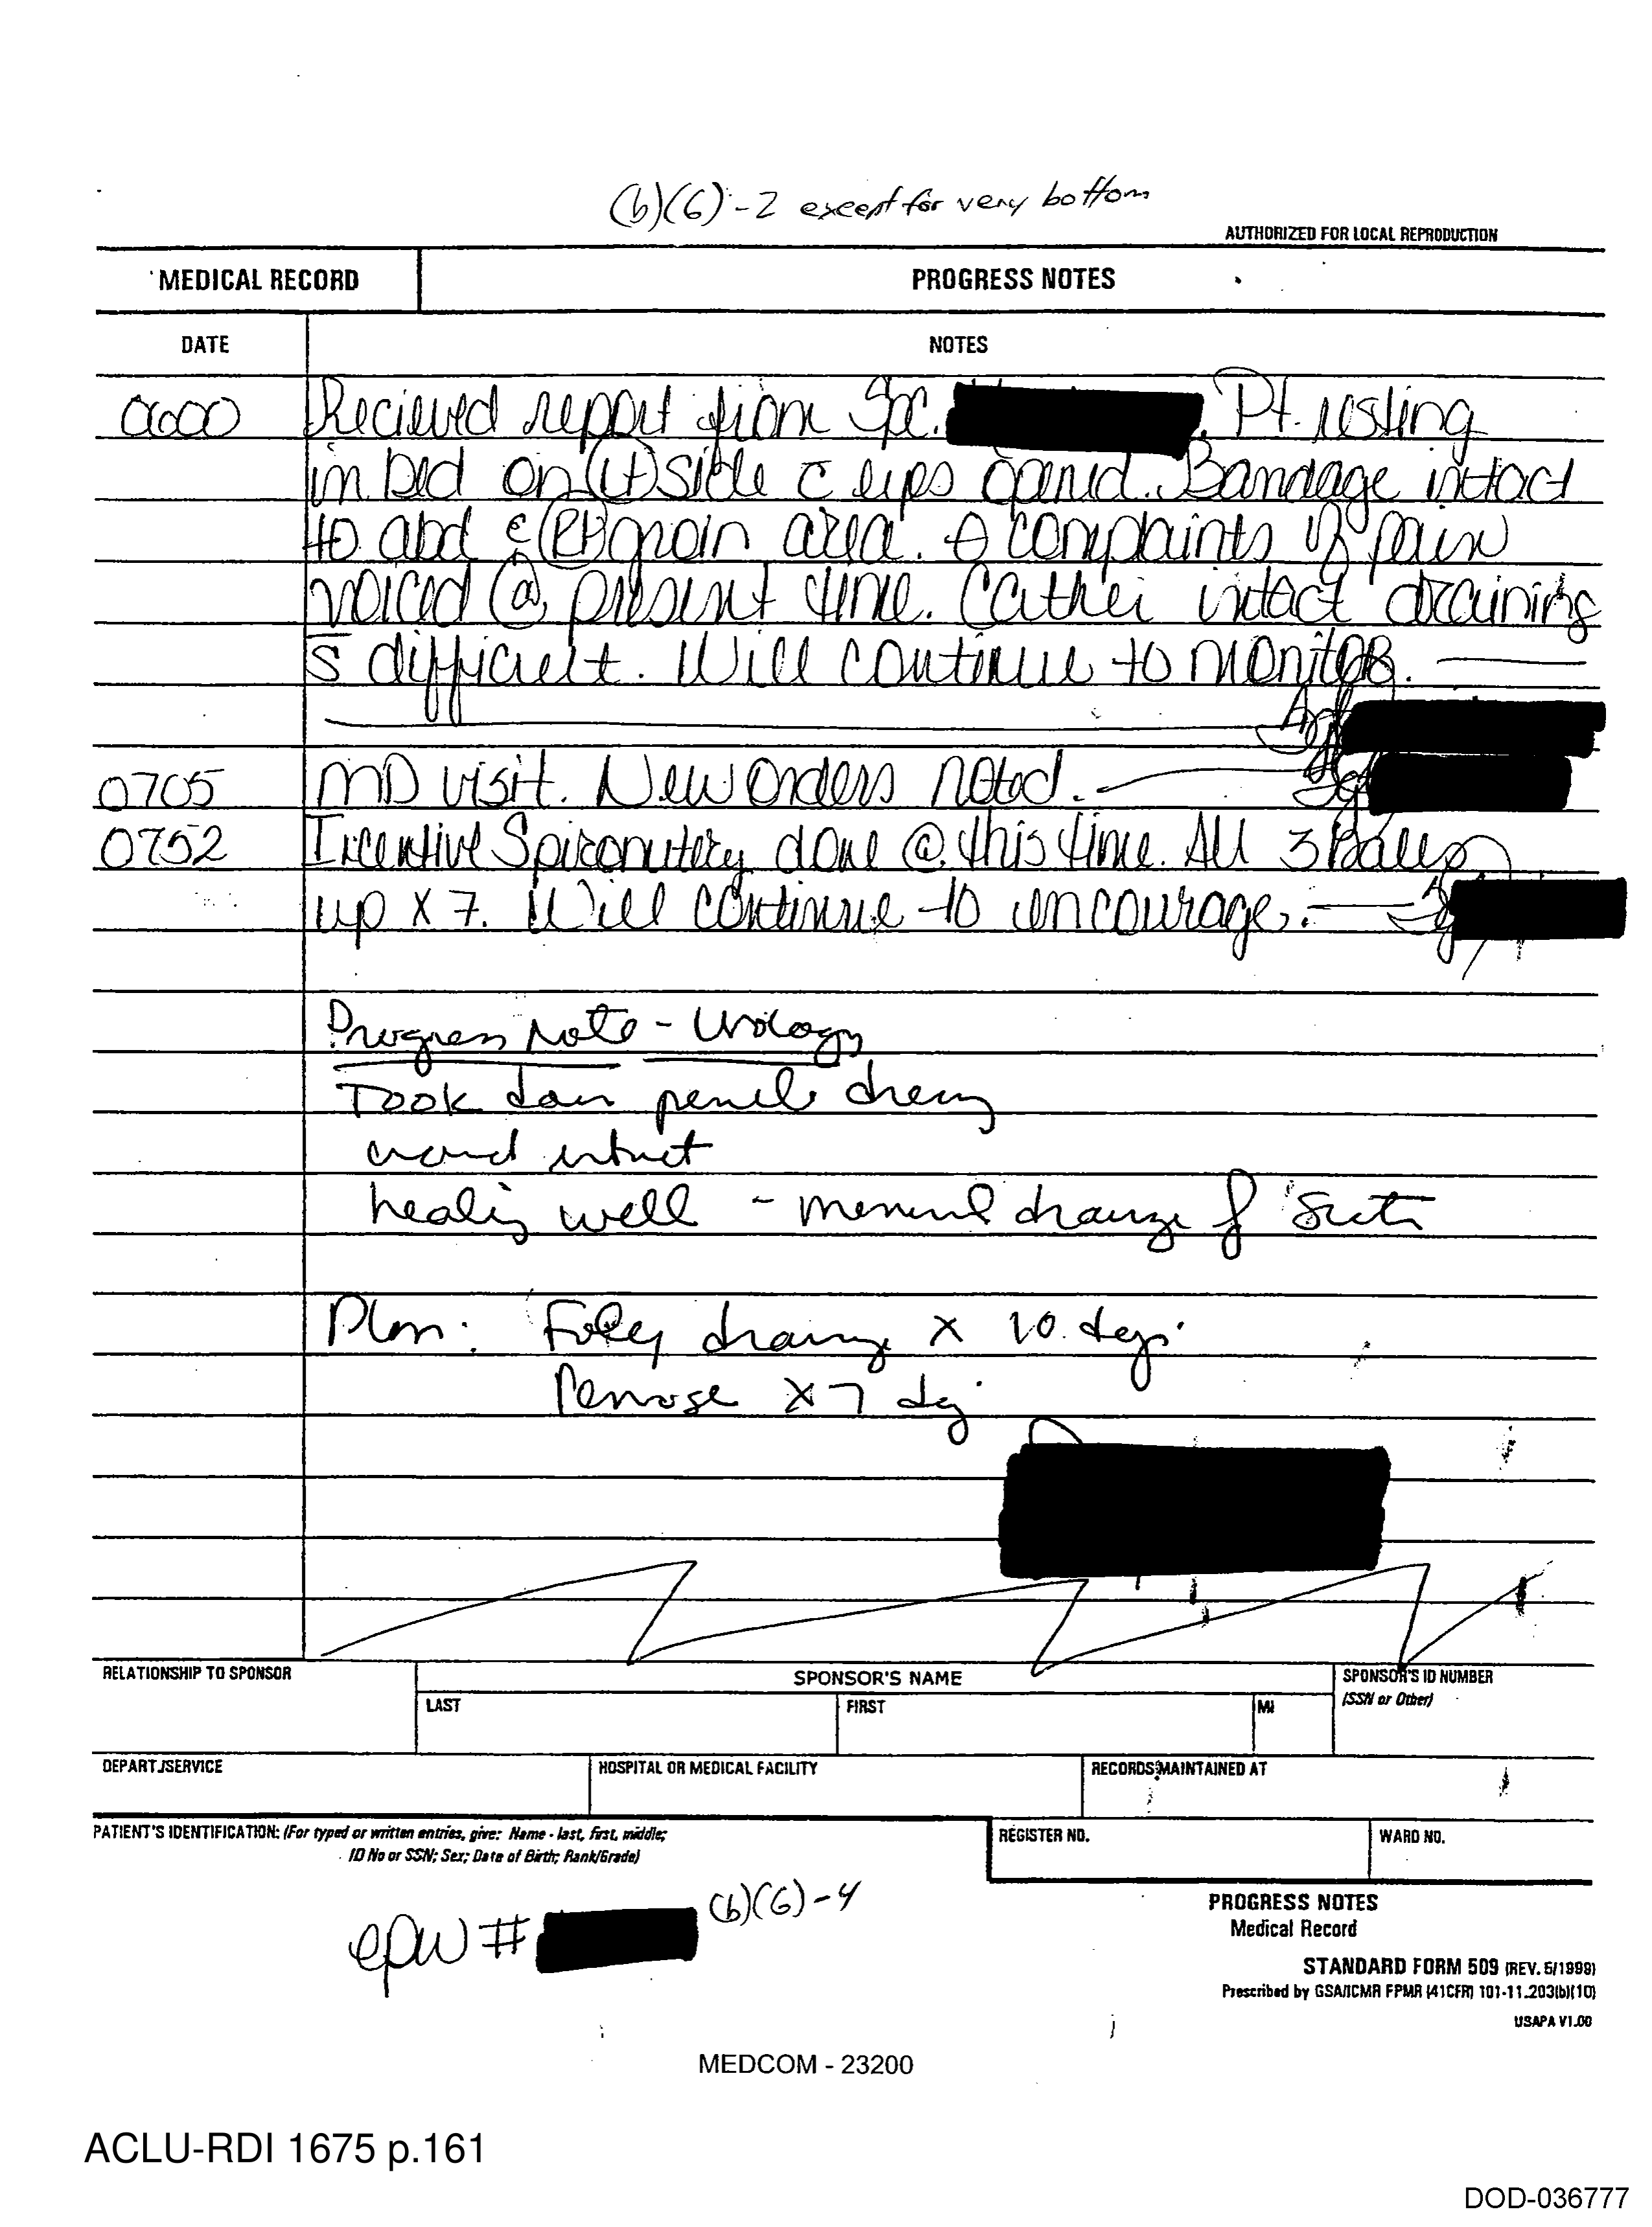 (b)(6)-2 except for very bottom
AUTHORIZED FOR LOCAL REPRODUCTION
MEDICAL RECORD PROGRESS NOTES
DATE NOTES
0600 Recieved report from Spc. Pt. resting
in bed on (Lt) side c̄ eyes opened. Bandage intact
to abd & (Rt) groin area. ∅ complaints of pain
voiced @ present time. Cather intact draining
s̄ difficult. Will continue to monitor.
0705 MD visit. New Orders noted.
0752 Incentive Spirometery done @ this time. All 3 balls
up x 7. Will continue to encourage.
Progress Note - Urology
Took down penile
wound intact
healing well -
Plan: Foley drainage x 10 days
Penrose x 7 day
RELATIONSHIP TO SPONSOR SPONSOR'S NAME SPONSOR'S ID NUMBER
LAST FIRST MI (SSN or Other)
DEPART./SERVICE HOSPITAL OR MEDICAL FACILITY RECORDS MAINTAINED AT
PATIENT'S IDENTIFICATION: (For typed or written entries, give: Name - last, first, middle; REGISTER NO. WARD NO.
ID No or SSN; Sex; Date of Birth; Rank/Grade)
epw # (b)(6)-4
PROGRESS NOTES
Medical Record
STANDARD FORM 509 (REV. 5/1999)
Prescribed by GSA/ICMR FPMR (41CFR) 101-11.203(b)(10)
USAPA V1.00
MEDCOM - 23200
ACLU-RDI 1675 p.161
DOD-036777